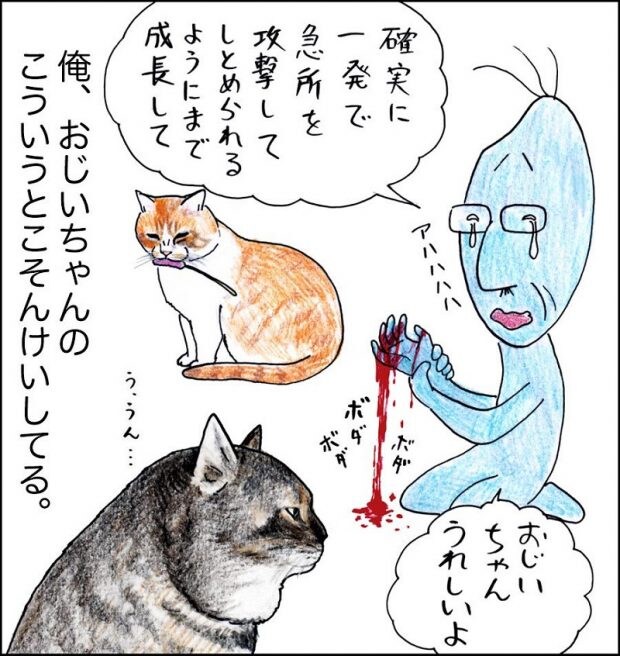 確実に
一発で
急所を
攻撃して
しとめられる
ようにまで
成長して
アハハハハ
ボダ
ボダ
ボダ
おじい
ちゃん
うれしいよ
う、うん…
俺、おじいちゃんの
こういうとこそんけいしてる。